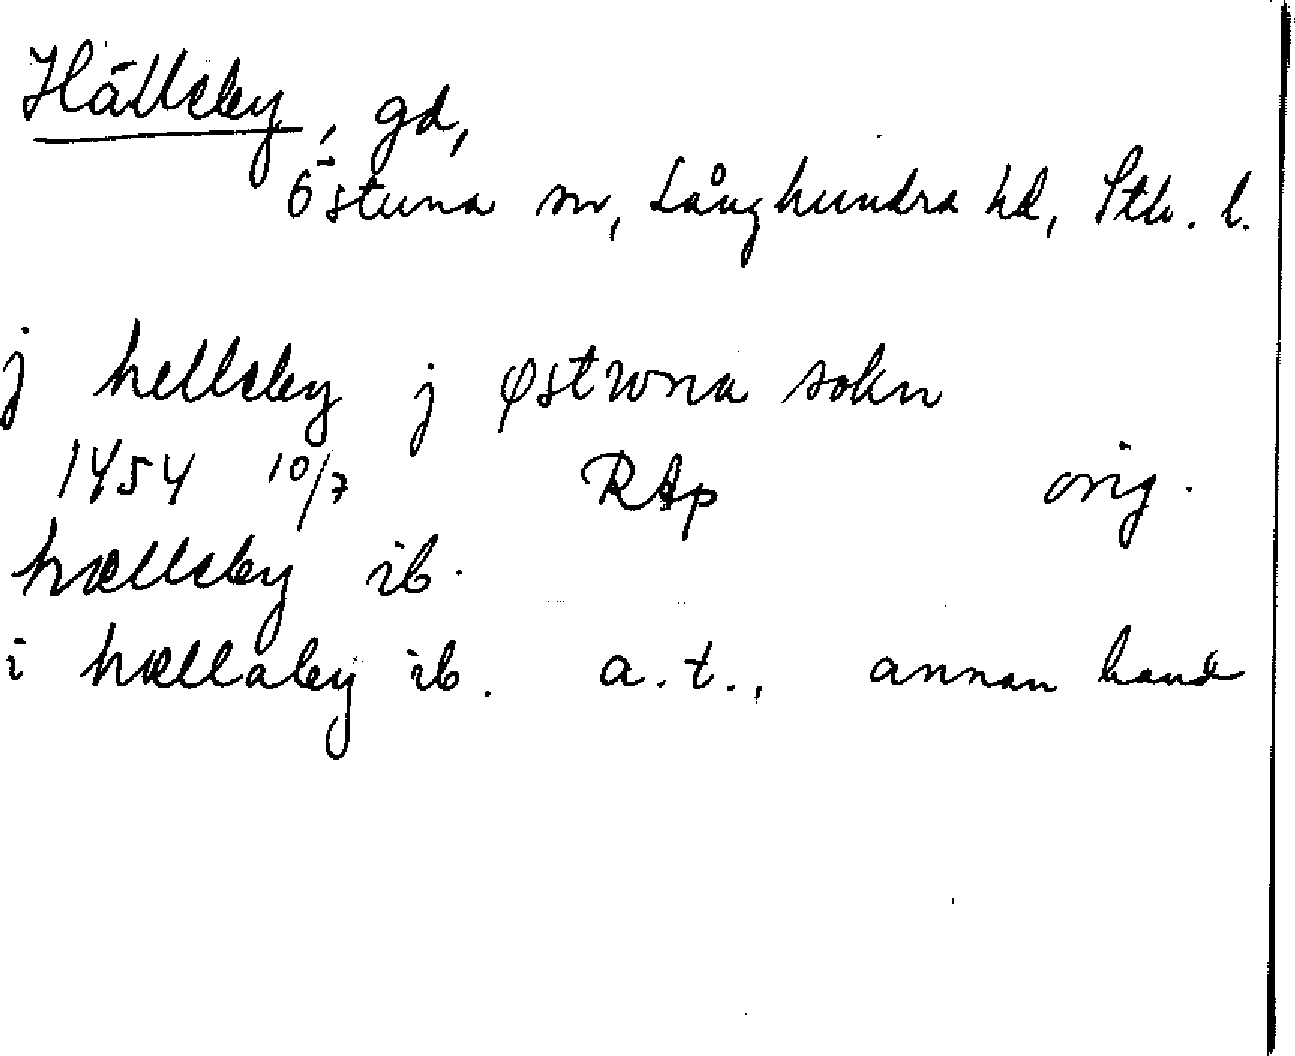 Hälleby, gd,
Östuna sn, Långhundra hd, Sth. l.
j helleby j østwna sokn
1454 10/7 RAp orig.
hælleby ib.
i hællaby ib. a.t., annan hand